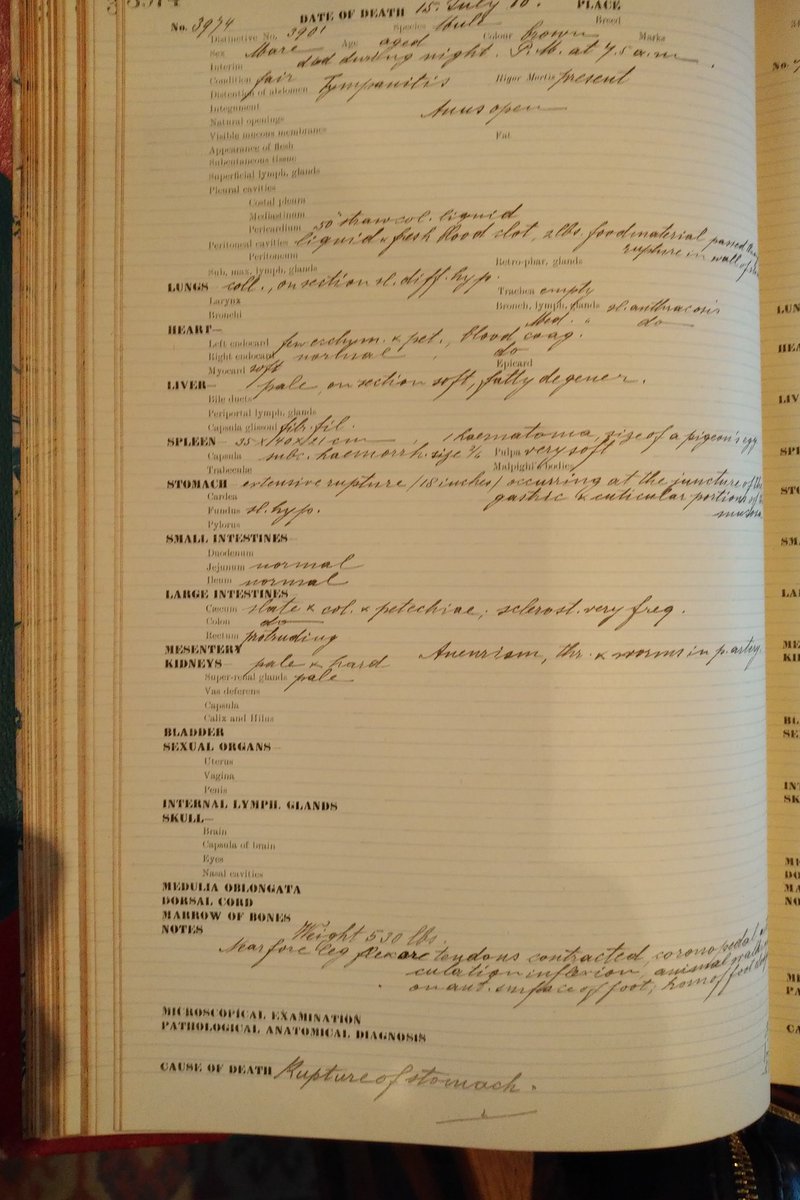 No. 3974 DATE OF DEATH 15. July 10. PLACE
Distinctive No. 3901 Species Mule Breed
Sex Mare Age aged Colour brown Marks
Interim died during night. P.M. at 7.5 a.m.
Condition fair Rigor Mortis present
Distention of abdomen Tympanitis
Integument
Natural openings Anus open
Visible mucous membranes
Appearance of flesh Fat
Subcutaneous tissue
Superficial lymph. glands
Pleural cavities
Costal pleura
Mediastinum
Pericardium 50" straw col. liquid
Peritoneal cavities liquid & fresh blood clot, 2lbs. food material passed
rupture in wall of
Peritoneum
Sub. max. lymph. glands Retro-phar. glands
LUNGS coll., on section sl. diff. hyp. Trachea empty
Larynx Bronch. lymph. glands sl. anthracosis
Bronchi Med. " do
HEART—
Left endocard few ecchym. & pet., blood coag.
Right endocard normal do
Myocard soft Epicard
LIVER— pale, on section soft, fatty degener.
Bile ducts
Periportal lymph. glands
Capsula glissoni fib. fil.
SPLEEN— 1 haematoma, size of a pigeon's egg
Capsula subc. haemorrh. size Pulpa very soft
Trabeculae Malpighi bodies
STOMACH extensive rupture (18 inches) occurring at the juncture of the
gastric & cuticular portions of
Cardea
Fundus sl. hyp.
Pylorus
SMALL INTESTINES—
Duodenum
Jejunum normal
Ileum normal
LARGE INTESTINES
Cæcum slate & col. & petechiae, sclerost. very freq.
Colon do
Rectum protruding
MESENTERY Aneurism, thr. & worms in p. artery.
KIDNEYS— pale & hard
Super-renal glands pale
Vas deferens
Capsula
Calix and Hilus
BLADDER
SEXUAL ORGANS—
Uterus
Vagina
Penis
INTERNAL LYMPH. GLANDS
SKULL—
Brain
Capsula of brain
Eyes
Nasal cavities
MEDULIA OBLONGATA
DORSAL CORD
MARROW OF BONES
NOTES Weight 530 lbs.
Near fore leg flexore tendons contracted, corono pedal
culation in flexion, animal
on ant. surface of foot; horn of foot
MICROSCOPICAL EXAMINATION
PATHOLOGICAL ANATOMICAL DIAGNOSIS
CAUSE OF DEATH Rupture of stomach.